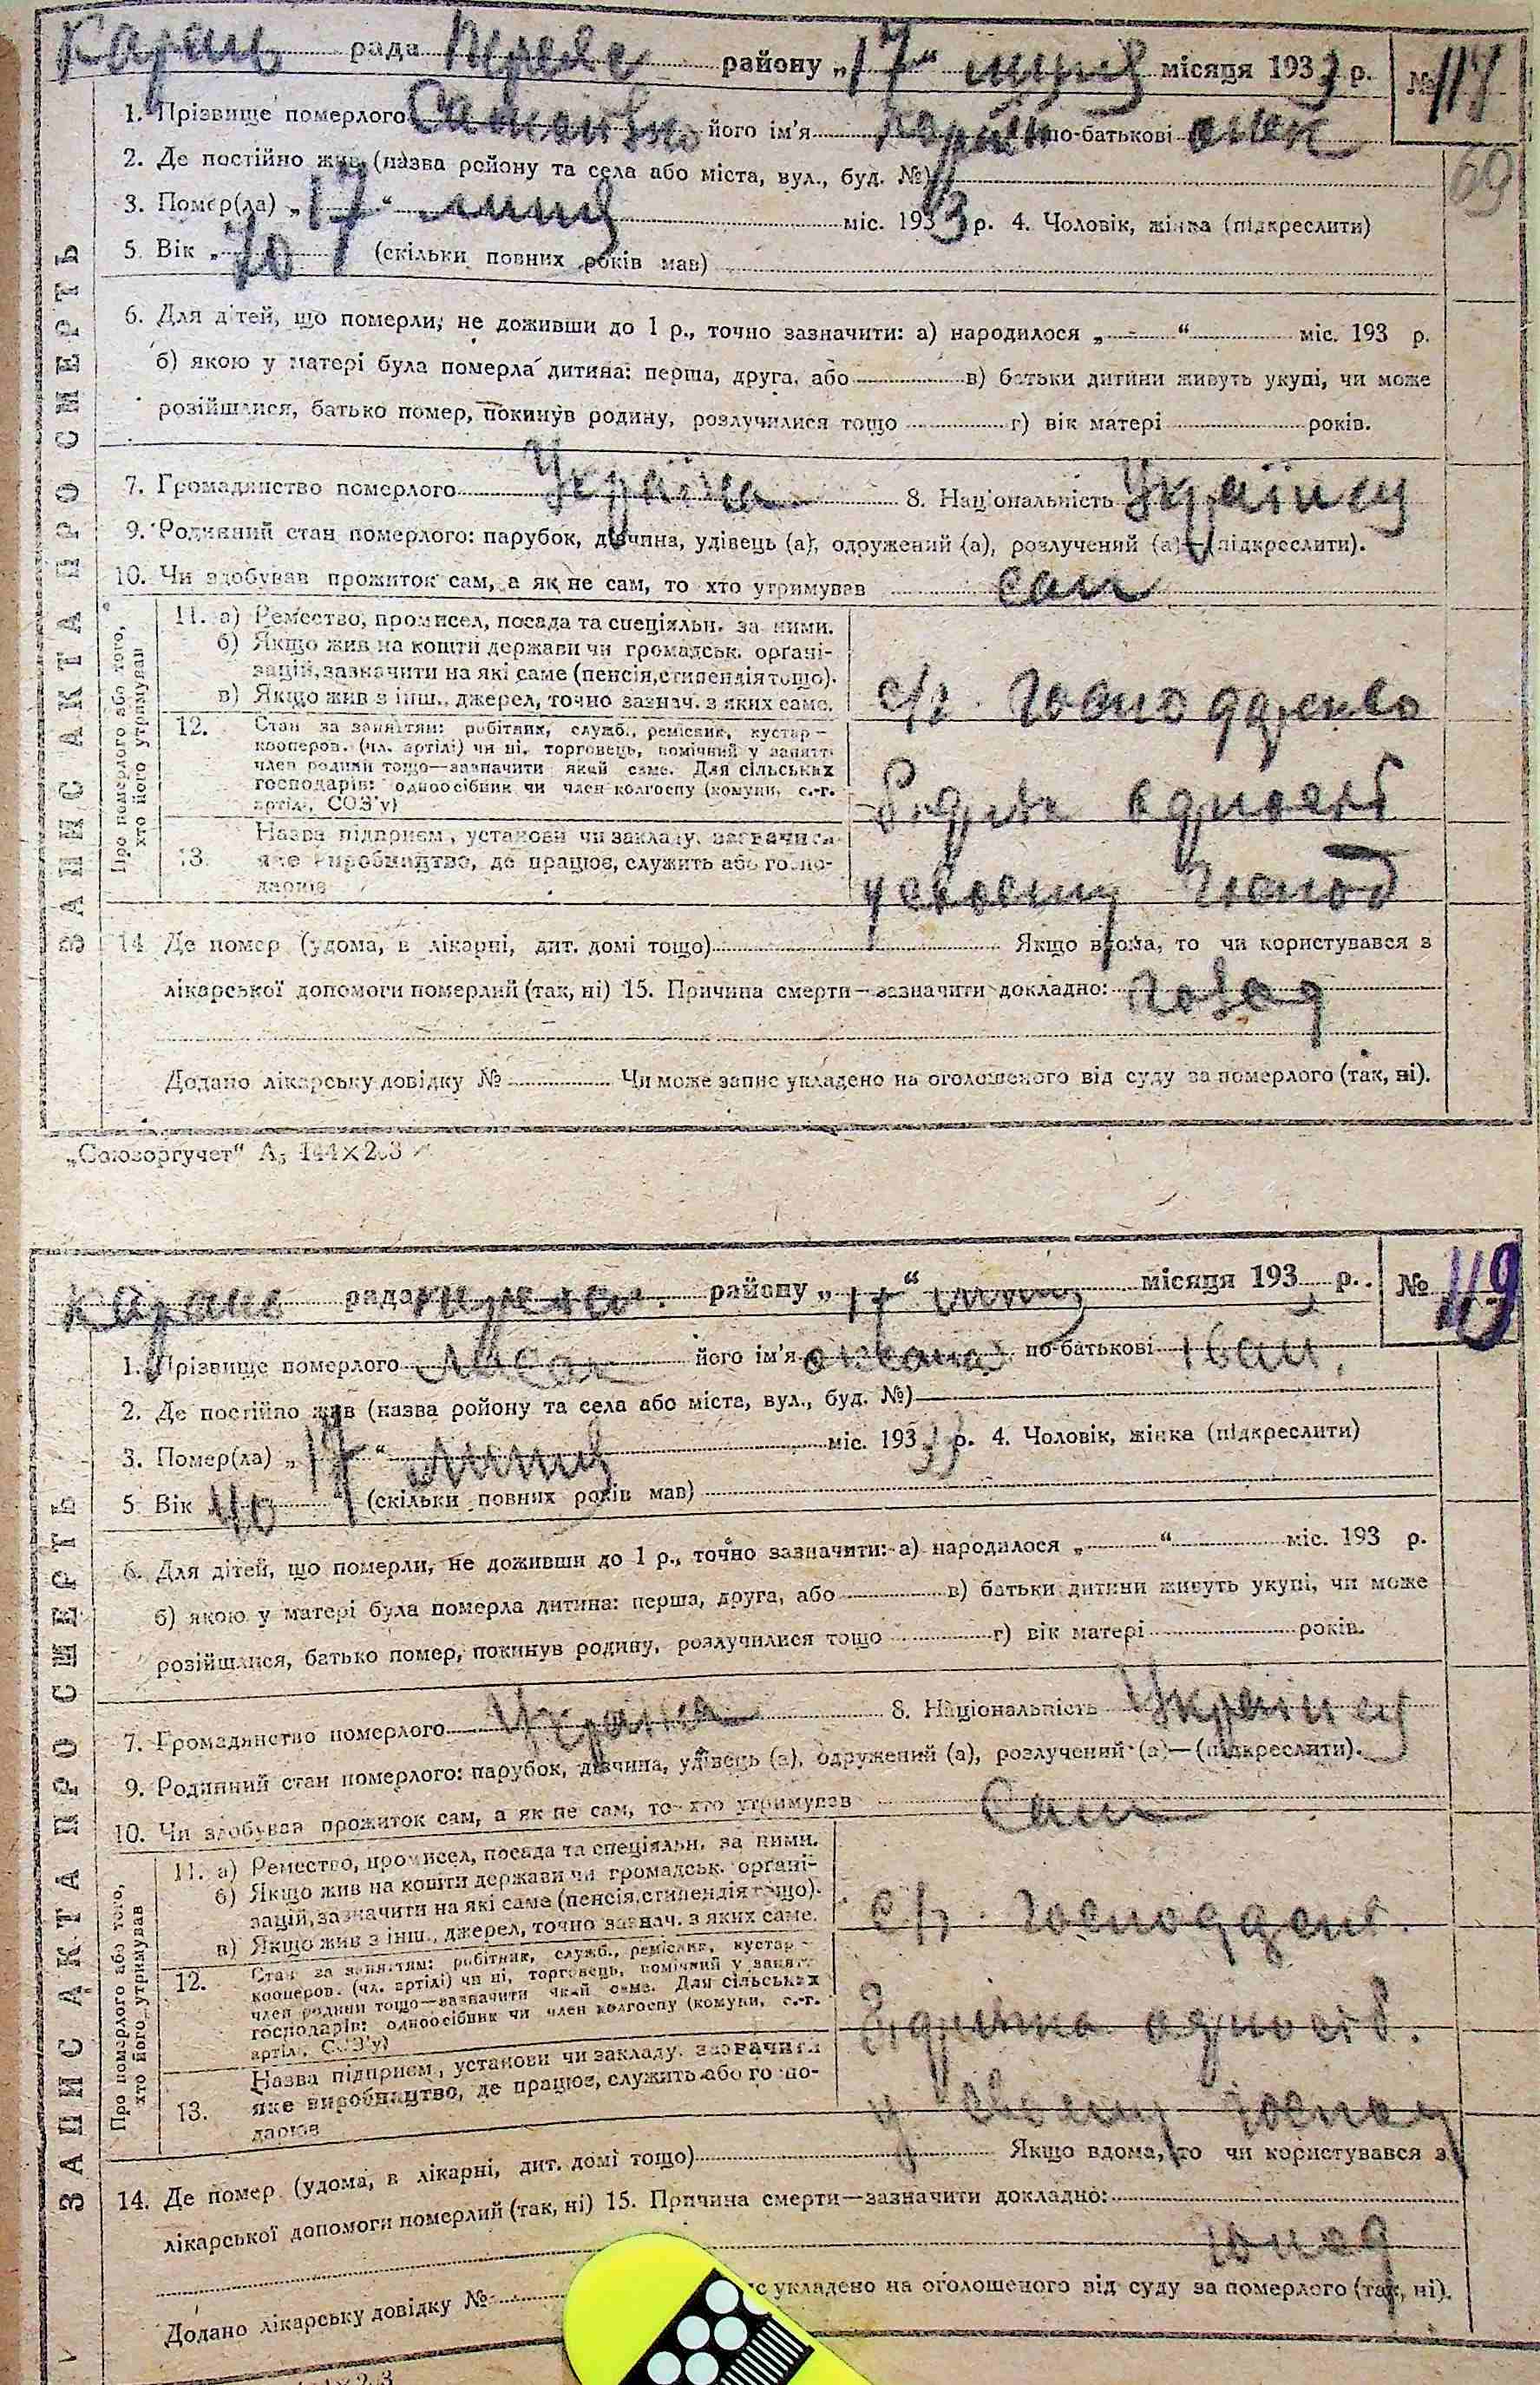 Карань рада района району „17“ липня місяця 1933 р. №117
69
1. Прізвище померлого його ім'я по-батькові
2. Де постійно жив (назва району та села або міста, вул., буд. №)
3. Помер(ла) „17“ липня міс. 1933 р. 4. Чоловік, жінка (підкреслити)
5. Вік „70 (скільки повних років мав)
6. Для дітей, що померли, не доживши до 1 р., точно зазначити: а) народилося „ “ міс. 193 р.
б) якою у матері була померла дитина: перша, друга, або в) батьки дитини живуть укупі, чи може
розійшлися, батько помер, покинув родину, розлучилися тощо г) вік матері років.
7. Громадянство померлого Україна 8. Національність Українец
9. Родинний стан померлого: парубок, дівчина, удівець (а), одружений (а), розлучений (а)—(підкреслити).
10. Чи здобував прожиток сам, а як не сам, то хто утримував сам
ЗАПИС АКТА ПРО СМЕРТЬ
Про померлого або того, хто його утримував
11. а) Ремество, промисел, посада та спеціяльн. за ними.
б) Якщо жив на кошти держави чи громадськ. органі-
зацій, зазначити на які саме (пенсія, стипендія тощо).
в) Якщо жив з інш., джерел, точно зазнач. з яких саме.
с/г. господарство
12. Стан за заняттям: робітник, служб., ремісник, кустар—
кооперов. (чл. артілі) чи ні, торговець, помічний у занятт.
член родини тощо—зазначити який саме. Для сільських
господарів: одноосібник чи член колгоспу (комуни, с.-г.
артілі, СОЗ'у)
одноосіб
13. Назва підприєм., установи чи закладу, зазначити
яке виробництво, де працює, служить або госпо-
дарює
у своему господ
14. Де помер (удома, в лікарні, дит. домі тощо) Якщо вдома, то чи користувався з
лікарської допомоги померлий (так, ні) 15. Причина смерти—зазначити докладно:
Додано лікарську довідку № Чи може запис укладено на оголошеного від суду за померлого (так, ні).
„Союзоргучет“ А5 144×203
Карань рада району „17“ липня місяця 193 р. №119
1. Прізвище померлого його ім'я по-батькові Іван.
2. Де постійно жив (назва району та села або міста, вул., буд. №)
3. Помер(ла) „17“ липня міс. 1933 р. 4. Чоловік, жінка (підкреслити)
5. Вік 40 (скільки повних років мав)
6. Для дітей, що померли, не доживши до 1 р., точно зазначити: а) народилося „ “ міс. 193 р.
б) якою у матері була померла дитина: перша, друга, або в) батьки дитини живуть укупі, чи може
розійшлися, батько помер, покинув родину, розлучилися тощо г) вік матері років.
7. Громадянство померлого Україна 8. Національність Українец
9. Родинний стан померлого: парубок, дівчина, удівець (а), одружений (а), розлучений (а)—(підкреслити).
10. Чи здобував прожиток сам, а як не сам, то хто утримував Сам
ЗАПИС АКТА ПРО СМЕРТЬ
Про померлого або того, хто його утримував
11. а) Ремество, промисел, посада та спеціяльн. за ними.
б) Якщо жив на кошти держави чи громадськ. органі-
зацій, зазначити на які саме (пенсія, стипендія тощо).
в) Якщо жив з інш., джерел, точно зазнач. з яких саме.
с/г.
12. Стан за заняттям: робітник, служб., ремісник, кустар—
кооперов. (чл. артілі) чи ні, торговець, помічний у занятт.
член родини тощо—зазначити який саме. Для сільських
господарів: одноосібник чи член колгоспу (комуни, с.-г.
артілі, СОЗ'у)
одноосіб.
13. Назва підприєм., установи чи закладу, зазначити
яке виробництво, де працює, служить або госпо-
дарює
у своему господ
14. Де помер (удома, в лікарні, дит. домі тощо) Якщо вдома, то чи користувався з
лікарської допомоги померлий (так, ні) 15. Причина смерти—зазначити докладно:
Додано лікарську довідку № укладено на оголошеного від суду за померлого (так, ні).